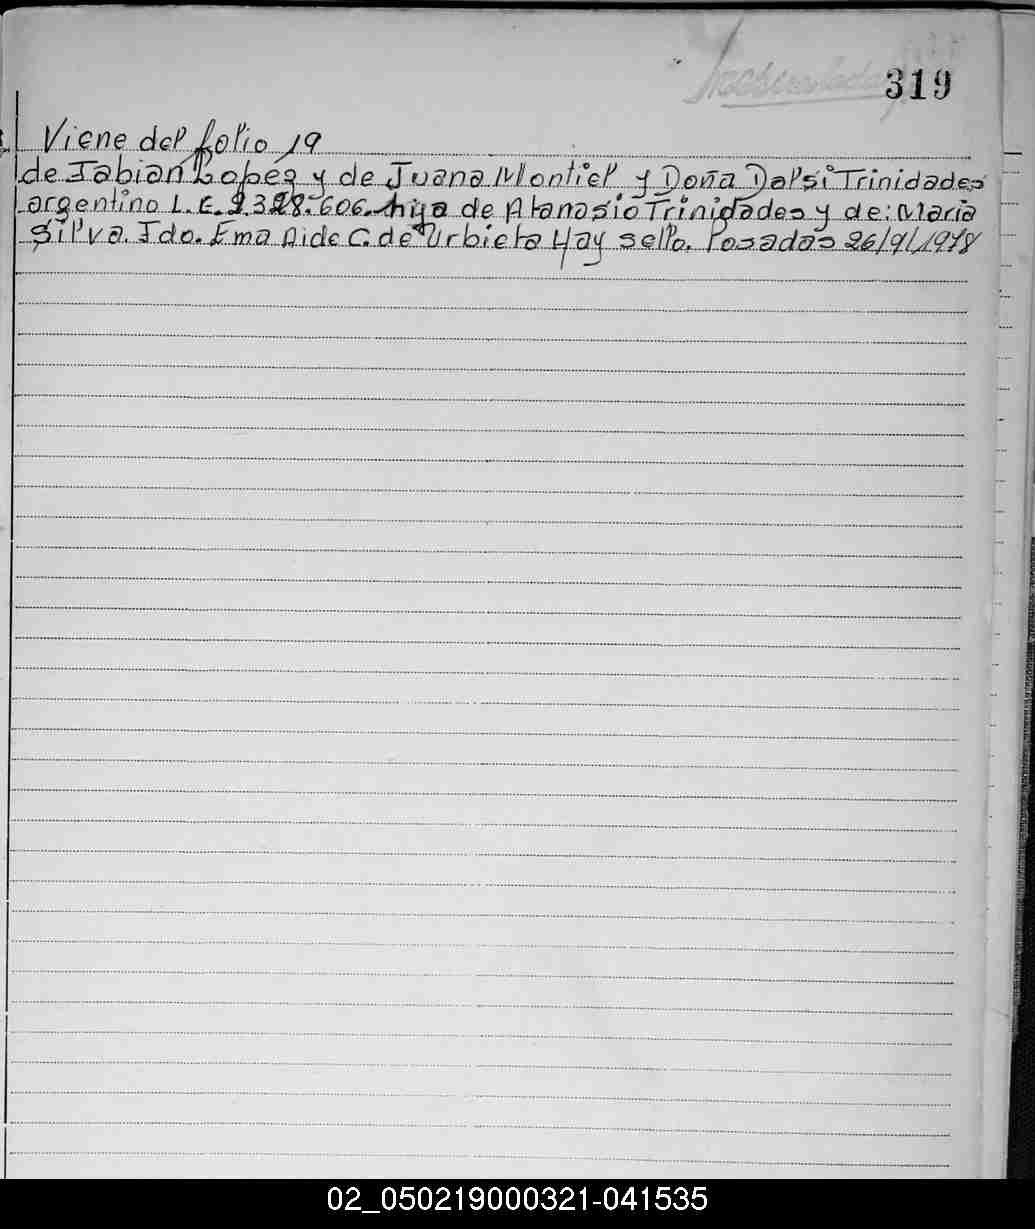 319
Viene del folio 19
de Fabian Lopez y de Juana Montiel y Doña Dalsi Trinidades
argentino L.C. 2.328.606. hija de Atanasio Trinidades y de: Maria
Silva. Fdo. Ema Aide C. de Urbieta Hay sello. Posadas 26/9/1978
02_050219000321-041535